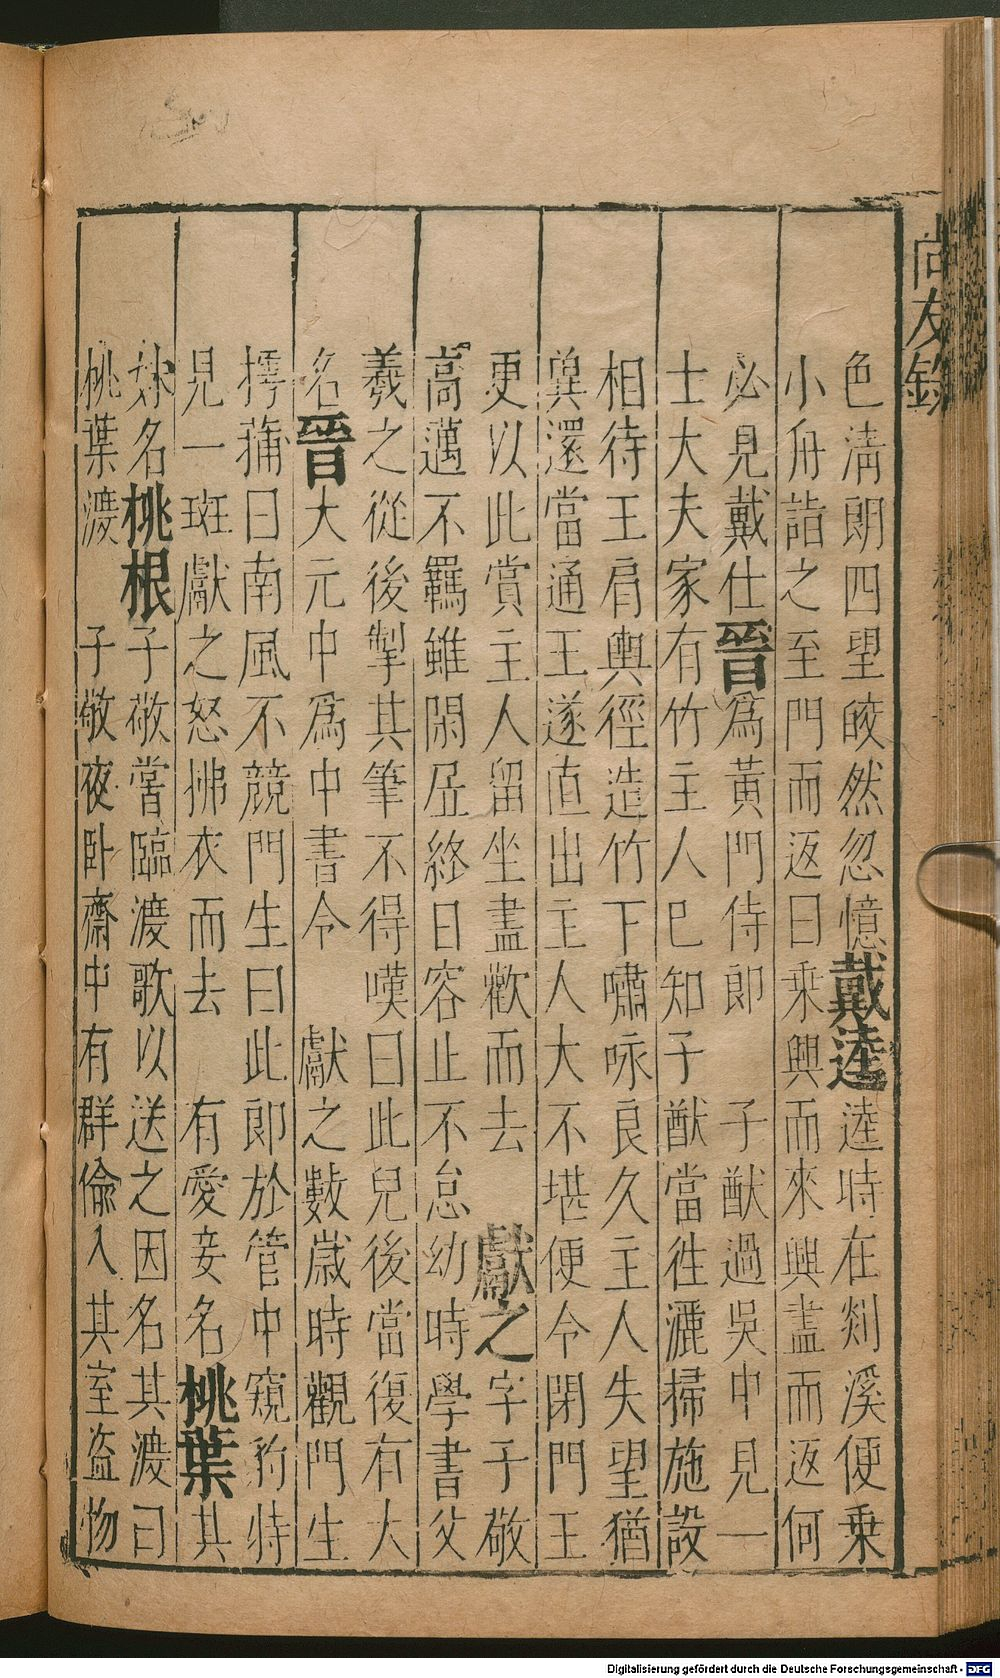 尚友錄
色清朗四望皎然忽憶戴逵逵時在剡溪便乗
小舟詣之至門而返曰乗興而來興盡而返何
必見戴仕晉爲黃門侍郎　子猷過吳中見一
士大夫家有竹竹主人巳知子猷當徃灑掃施設
相待王肩輿徑造竹下嘯咏良久主人失望猶
兾還當通王遂直出主人大不堪便令閉門王
更以此賞主人留坐盡歡而去　獻之字子敬
高邁不羈雖閑居終日容止不怠㓜時學書父
羲之從後掣其筆不得嘆曰此兒後當復有大
名晉大元中爲中書令　獻之數歲時觀門生
摴蒱曰南風不競門生曰此郎於管中窺豹特
見一斑獻之怒拂衣而去　有愛妾名桃葉其
妹名桃根子敬嘗臨渡歌以送之因名其渡曰
桃葉渡　子敬夜臥齋中有群偷入其室盗物
Digitalisierung gefördert durch die Deutsche Forschungsgemeinschaft - DFG